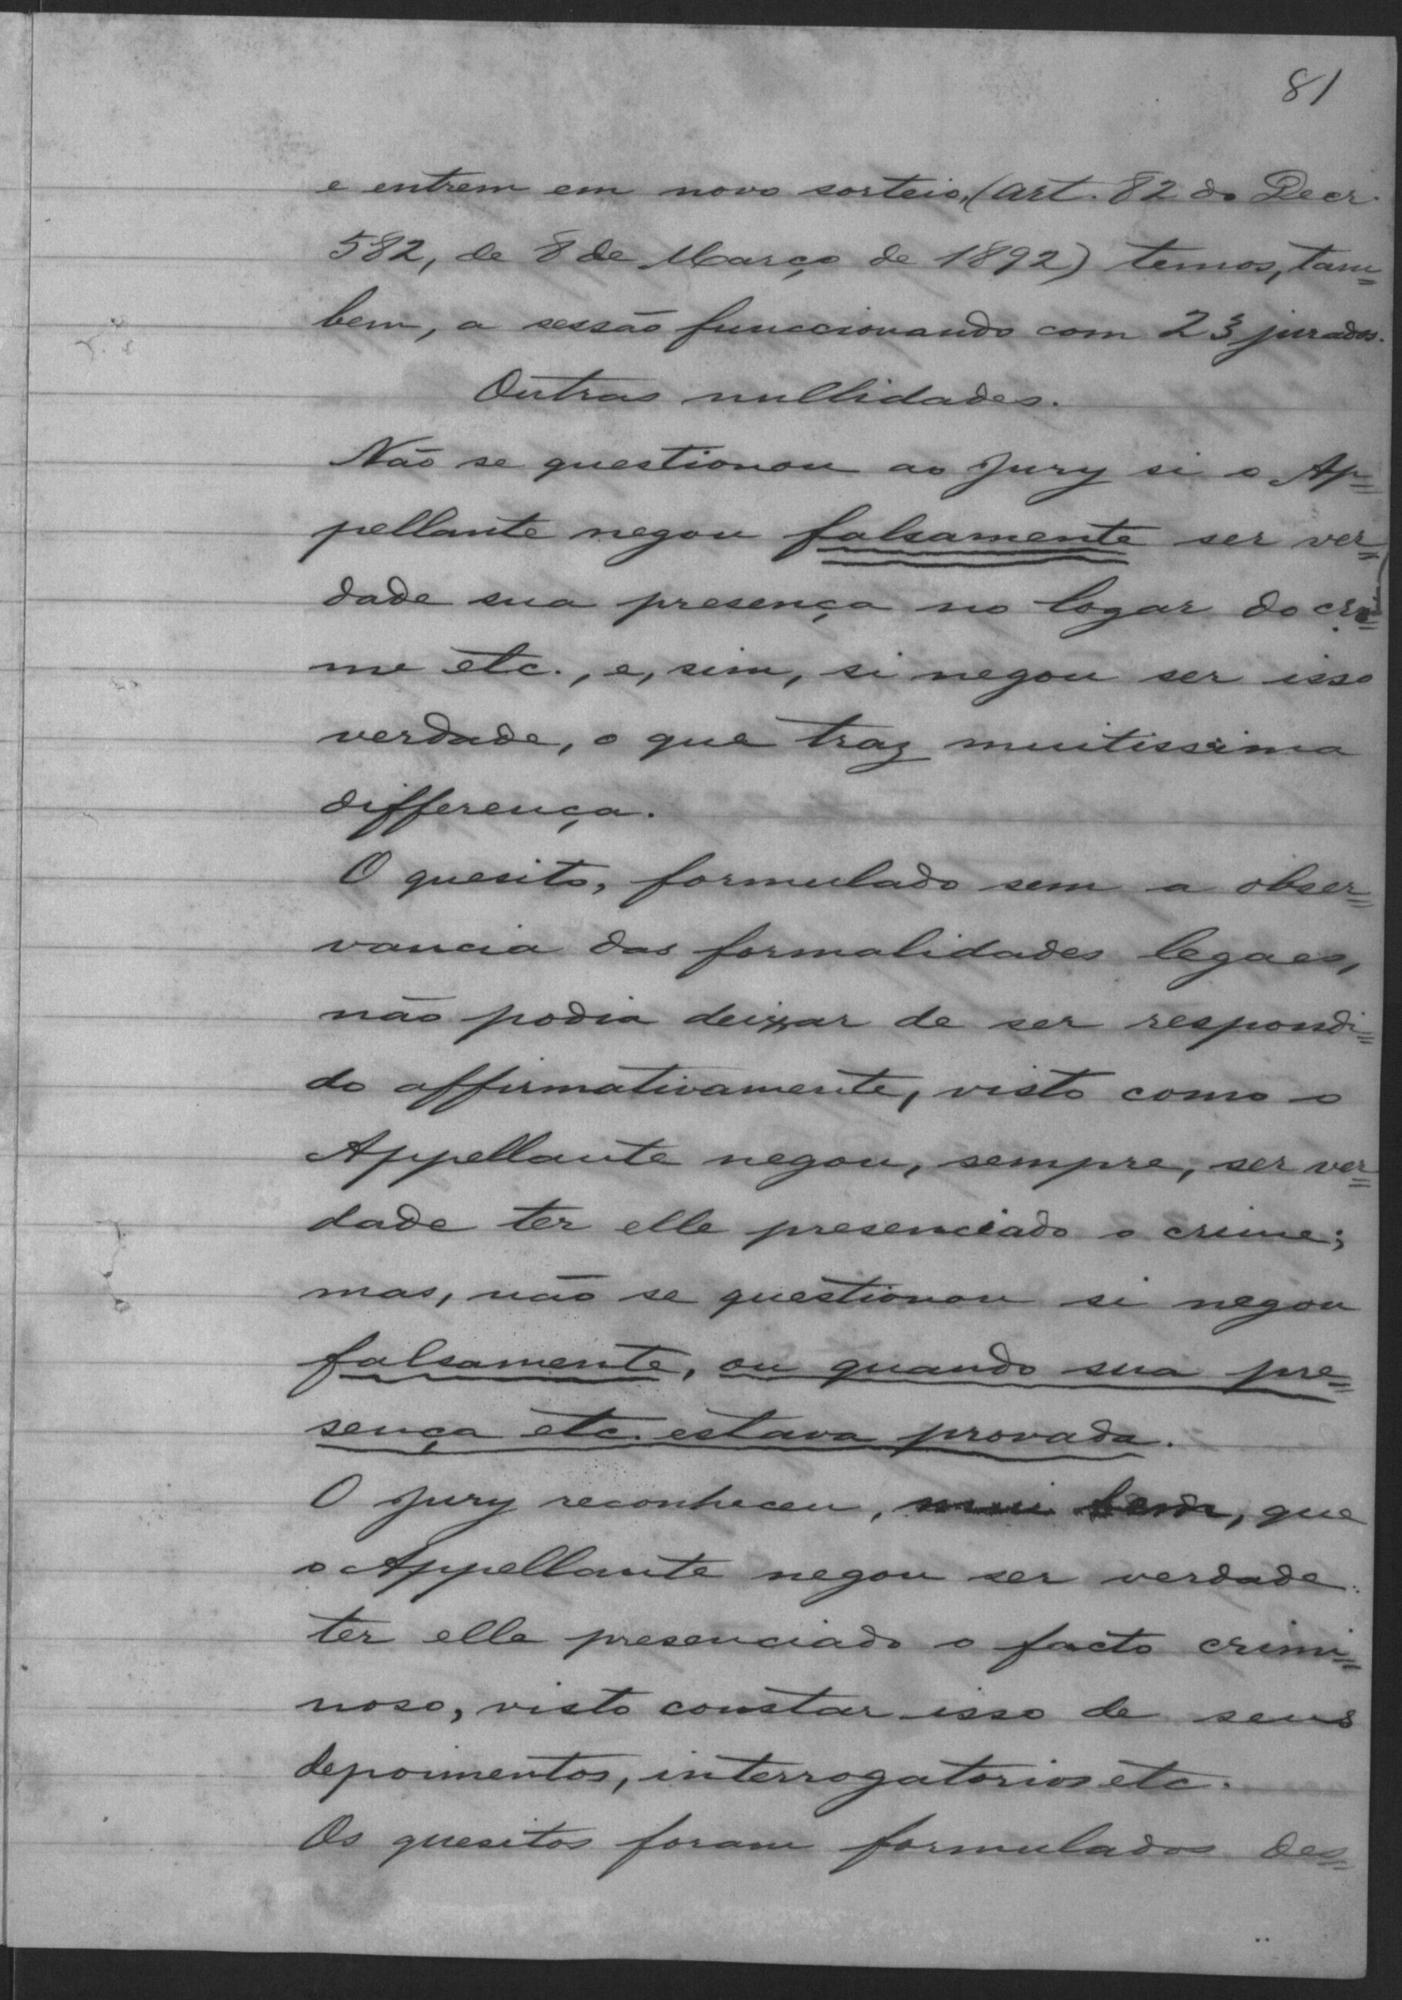 81
e entrem em novo sorteio, (art. 82 do Decr.
582, de 8 de Março de 1892) temos, tam=
bem, a sessão funccionando com 23 jurados.
Outras nullidades.
Não se questionou ao Jury si o Ap=
pellante negou falsamente ser ver=
dade sua presença no logar do cri=
me etc., e, sim, si negou ser isso
verdade, o que traz muitissima
differença.
O quesito, formulado sem a obser=
vancia das formalidades legaes,
não podia deixar de ser respondi=
do affirmativamente, visto como o
Appellante negou, sempre, ser ver=
dade ter elle presenciado o crime;
mas, não se questionou si negou
falsamente, ou quando sua pre=
sença etc. estava provada.
O Jury reconheceu, mui bem, que
o Appellante negou ser verdade
ter elle presenciado o facto crimi=
noso, visto constar isso de seus
depoimentos, interrogatorios etc.
Os quesitos foram formulados des=